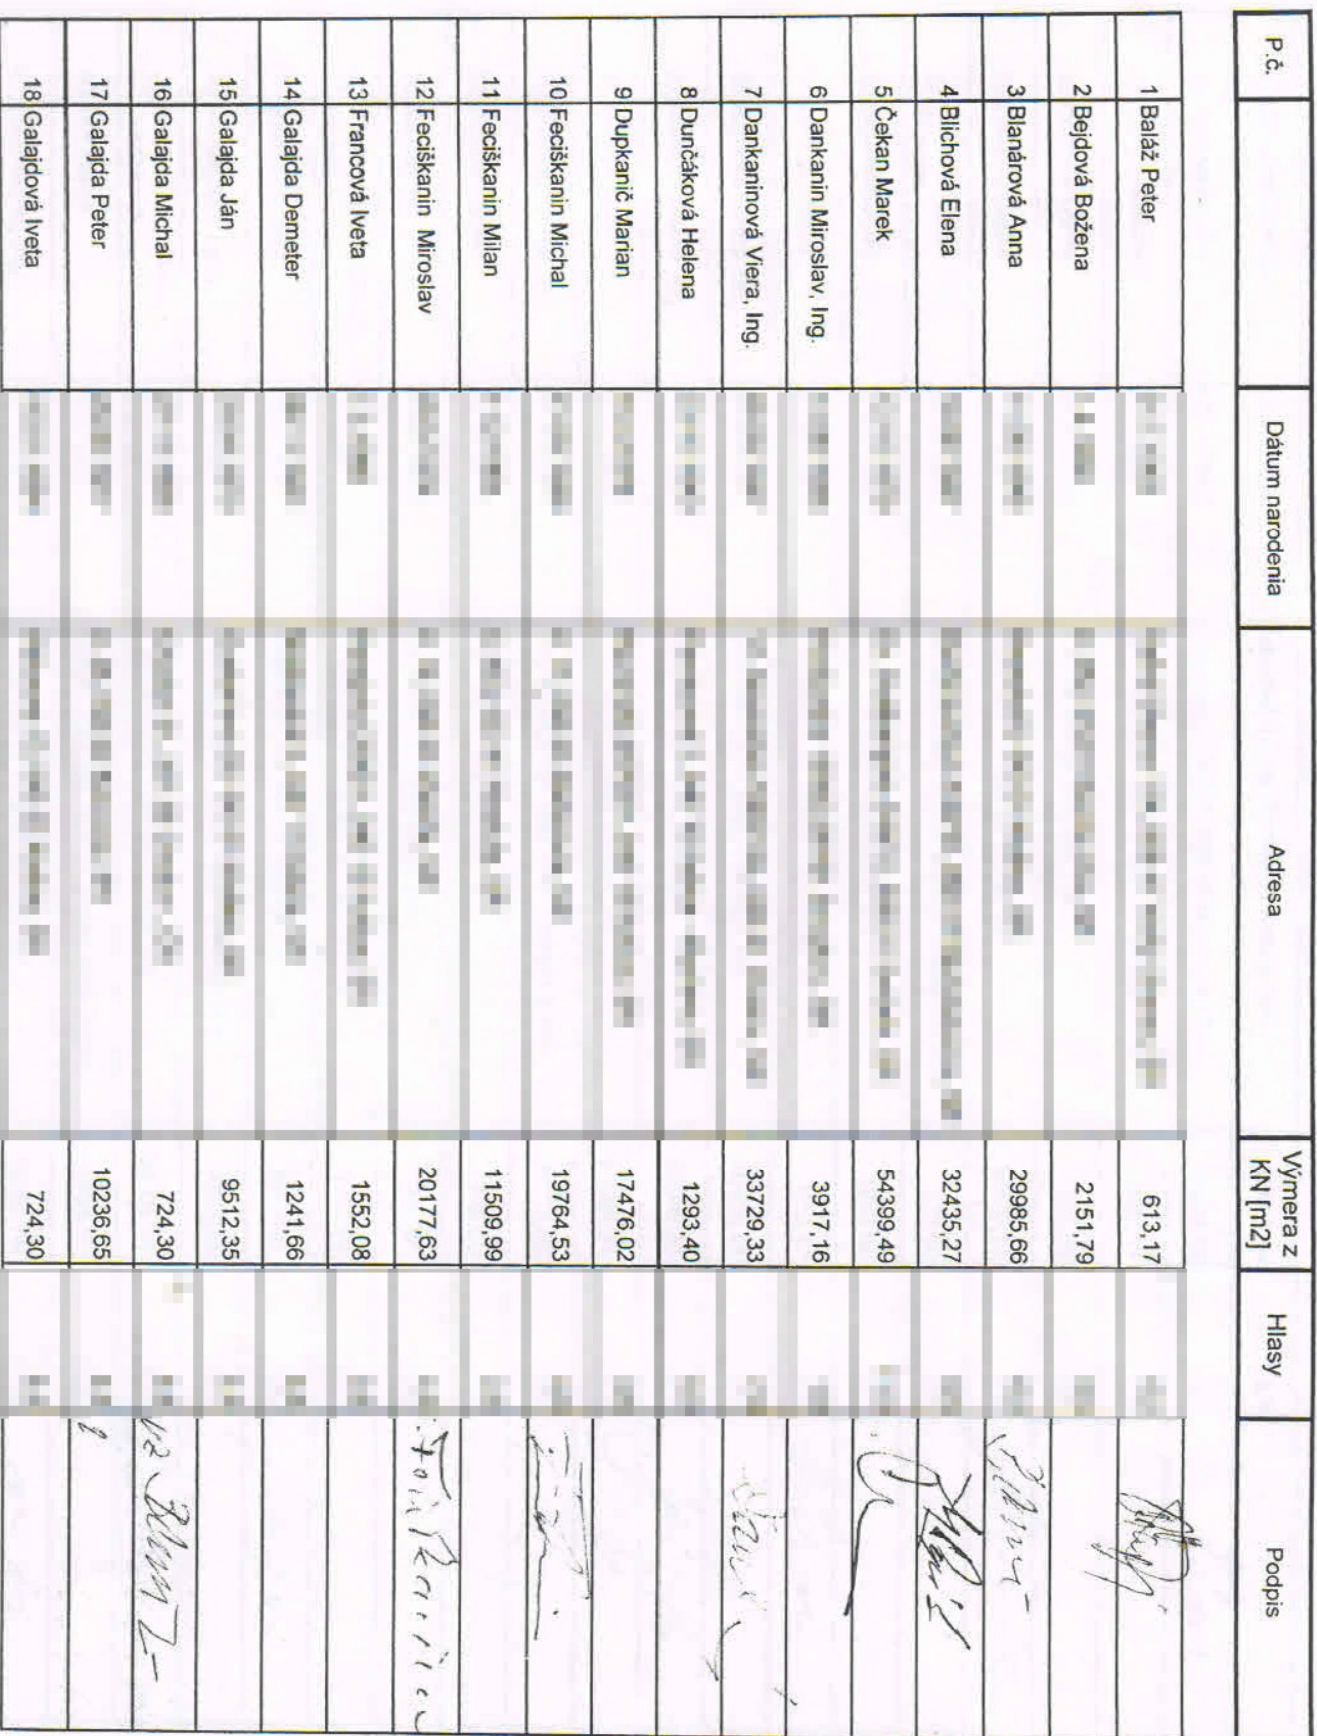 P.č. Dátum narodenia Adresa Výmera z KN [m2] Hlasy Podpis
1 Baláž Peter 613,17
2 Bejdová Božena 2151,79
3 Blanárová Anna 29985,66
4 Blichová Elena 32435,27
5 Čekan Marek 54399,49
6 Dankanin Miroslav, Ing. 3917,16
7 Dankaninová Viera, Ing. 33729,33
8 Dunčáková Helena 1293,40
9 Dupkanič Marian 17476,02
10 Feciškanin Michal 19764,53
11 Feciškanin Milan 11509,99
12 Feciškanin Miroslav 20177,63
13 Francová Iveta 1552,08
14 Galajda Demeter 1241,66
15 Galajda Ján 9512,35
16 Galajda Michal 724,30
17 Galajda Peter 10236,65
18 Galajdová Iveta 724,30